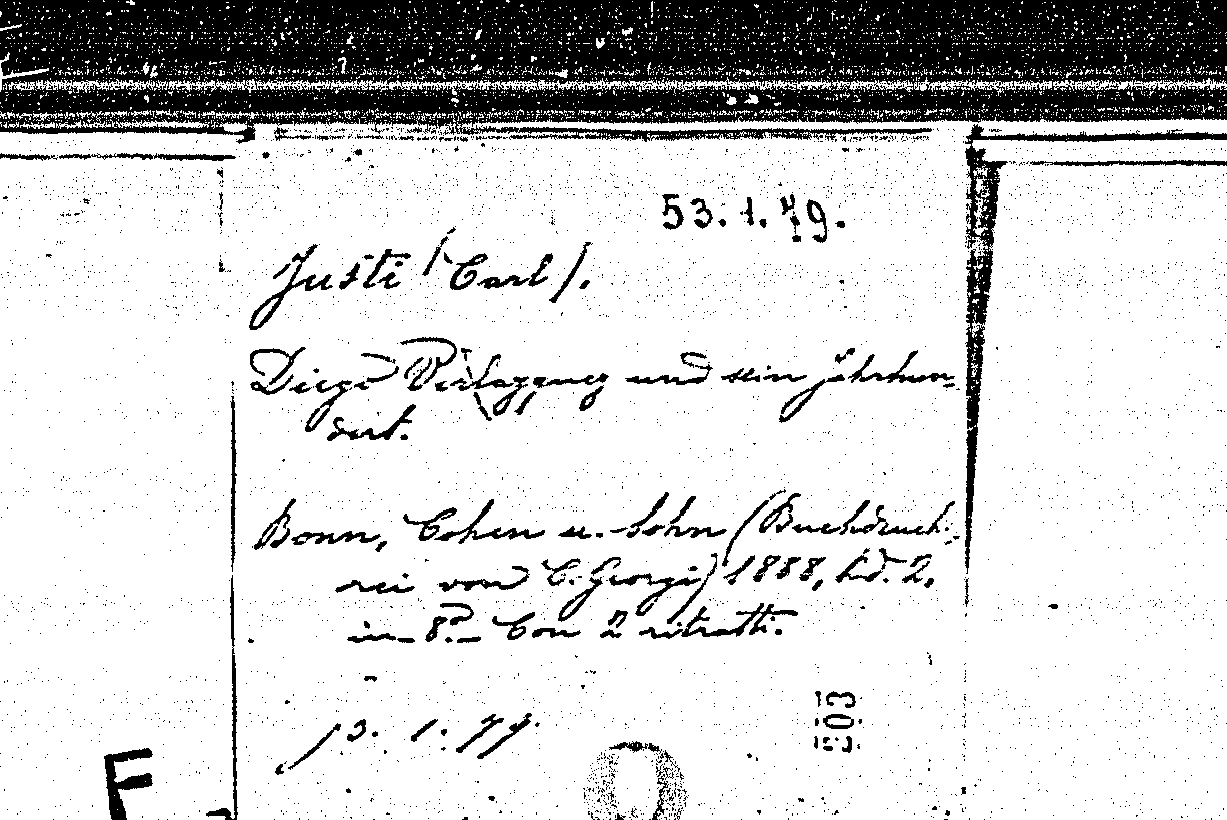 53.1.79.
Justi (Carl).
Diego Velazquez und sein Jahrhun-
dert.
Bonn, Cohen u. Sohn (Buchdruck-
rei von C. Georgi) 1888, bd. 2,
in 8º. Con 2 ritratti.
53. 1. 79.
503
F